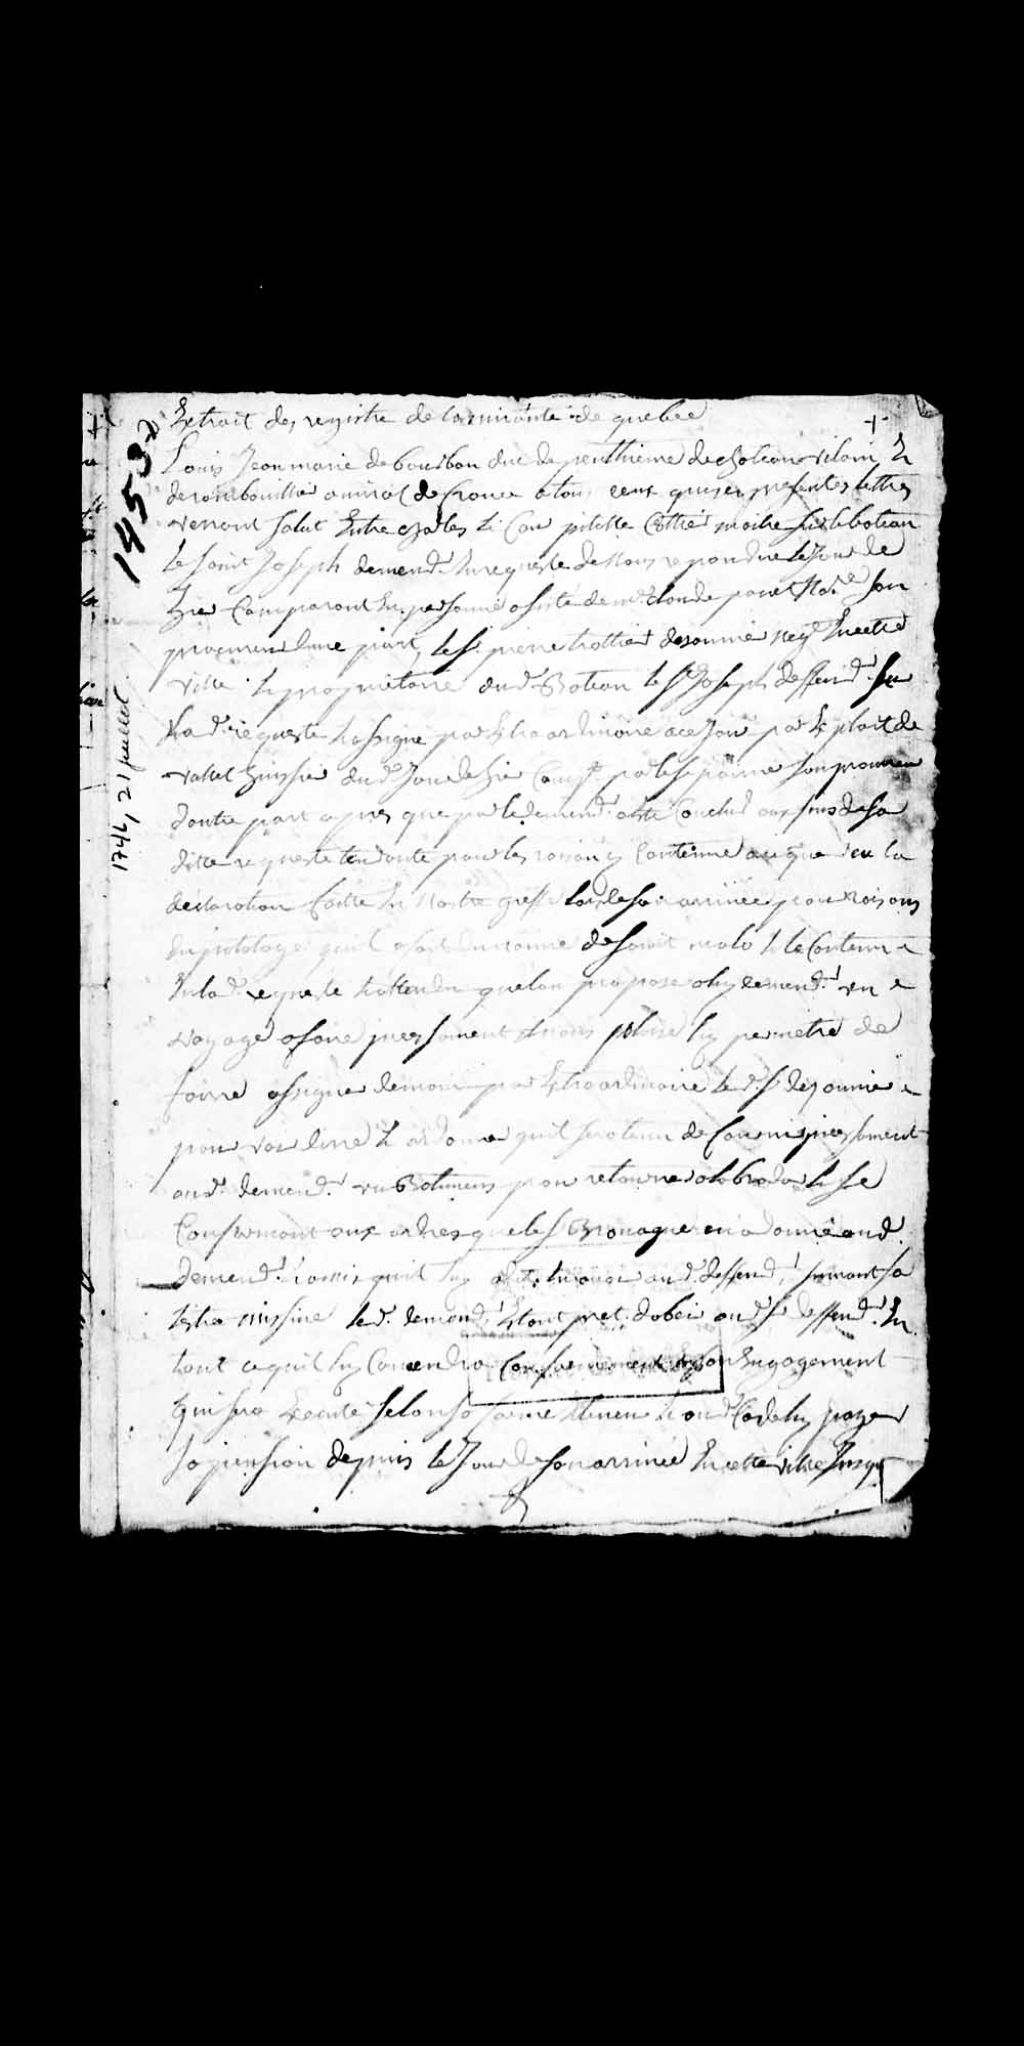 Extrait des registre de lamirauté de quebec
Louis Jean marie de bourbon duc de penthieme de chateauvilain Et
de rambouillie amiral de france a tous ceux qui ses presentes lettres
verront salut Entre charles le Cour pilotte Cottier maitre sur le bateau
le saint Joseph demend.r En requeste de nous repondue le Jour de
hier Comparant En personne assisté de m.e claude panet no.re son
procureur dune part, le s.r pierre trottier desaunié neg.t En cette
ville Et proprietaire dud. Bateau le s.t Joseph deffend.r sur
lad. requeste Et assigné par Extraordinaire a ce Jour par Exploit de
vallet huissier dud. Jour de hier Comp.t par le s.r poirier son procureur
dautre part apres que par le demend.r a esté Conclud aux fins de sa
ditte requeste tendante pour les raisons y Contenue a ce que veu la
declaration faitte En nostre greffe lors de son arrivée pour raisons
du pilotage quil a fait de saint malo Et le Contenu
En lad. requeste Et attendu que lon propose aluy demend.r un
voyage a faire pressament Il nous plaise luy permetre de
faire assigner demain par Extraordinaire led. s.r desaunie
pour voir dire Et ordonner quil sera tenu de fournir pressament
aud. demend.r un Batiment pour retourner a labrador Et se
Conformant aux ordres que le s.r Bronague en a donné aud.
demend.r aud. deffend.r suivant sa
lettre missive led. demend.r Etant pret dobeir aud. s.r deffend.r En
tout ce quil luy Conviendra Conformement a son Engagement
qui sera Executé selon sa forme Et teneur Et aud. Cas de luy payer
sa pension depuis le Jour de son arrivée En cette ville Jusqu
14532
1742, 21 juillet